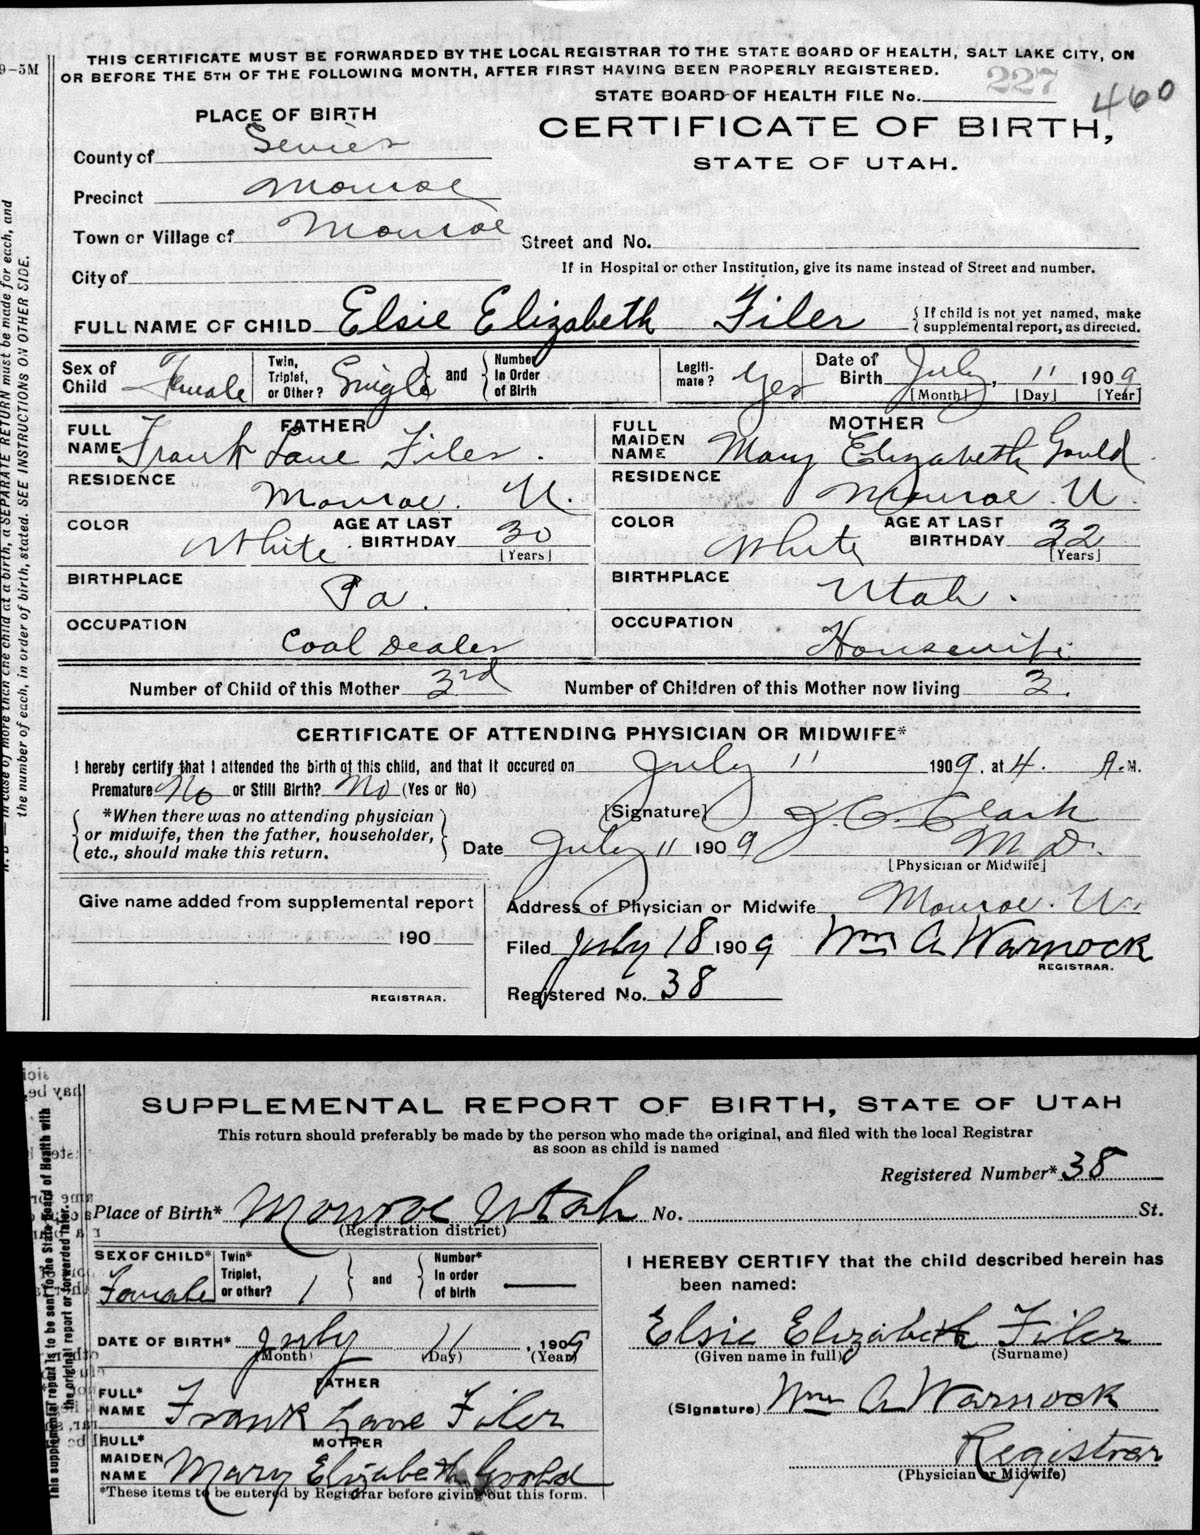 THIS CERTIFICATE MUST BE FORWARDED BY THE LOCAL REGISTRAR TO THE STATE BOARD OF HEALTH, SALT LAKE CITY, ON
OR BEFORE THE 5TH OF THE FOLLOWING MONTH, AFTER FIRST HAVING BEEN PROPERLY REGISTERED.
9-5M
STATE BOARD OF HEALTH FILE No. 227
460
PLACE OF BIRTH
CERTIFICATE OF BIRTH,
STATE OF UTAH.
County of Sevier
Precinct Monroe
Town or Village of Monroe Street and No.
City of If in Hospital or other Institution, give its name instead of Street and number.
FULL NAME OF CHILD Elsie Elizabeth Filer { If child is not yet named, make supplemental report, as directed.
Sex of Child Female Twin, Triplet, or Other? Single } and { Number In Order of Birth Legiti-mate? Yes Date of Birth July, 11 1909
[Month] [Day] [Year]
FATHER
FULL NAME Frank Lane Filer.
RESIDENCE Monroe. U.
COLOR White. AGE AT LAST BIRTHDAY 30 [Years]
BIRTHPLACE Pa.
OCCUPATION Coal Dealer
MOTHER
FULL MAIDEN NAME Mary Elizabeth Gould
RESIDENCE Monroe. U.
COLOR White AGE AT LAST BIRTHDAY 32 [Years]
BIRTHPLACE Utah.
OCCUPATION Housewife
Number of Child of this Mother 3rd Number of Children of this Mother now living 3.
CERTIFICATE OF ATTENDING PHYSICIAN OR MIDWIFE*
I hereby certify that I attended the birth of this child, and that it occured on July 11 1909, at 4. A.M.
Premature No or Still Birth? No (Yes or No)
{ *When there was no attending physician
or midwife, then the father, householder,
etc., should make this return. }
[Signature] J. C. Clark
Date July 11 1909 M. D.
[Physician or Midwife]
Give name added from supplemental report
190
REGISTRAR.
Address of Physician or Midwife Monroe. U.
Filed July 18 1909 Wm A Warnock
REGISTRAR.
Registered No. 38
N. B.—In case of more than one child at a birth, a SEPARATE RETURN must be made for each, and
the number of each, in order of birth, stated. SEE INSTRUCTIONS ON OTHER SIDE.
SUPPLEMENTAL REPORT OF BIRTH, STATE OF UTAH
This return should preferably be made by the person who made the original, and filed with the local Registrar
as soon as child is named
Registered Number* 38
Place of Birth* Monroe Utah No. St.
(Registration district)
SEX OF CHILD* Female Twin* Triplet, or other? 1 } and { Number* In order of birth —
DATE OF BIRTH* July 11, 1909
(Month) (Day) (Year)
FATHER
FULL* NAME Frank Lane Filer
MOTHER
FULL* MAIDEN NAME Mary Elizabeth Goold
*These items to be entered by Registrar before giving out this form.
I HEREBY CERTIFY that the child described herein has
been named:
Elsie Elizabeth Filer
(Given name in full) (Surname)
(Signature) Wm A Warnock
Registrar
(Physician or Midwife)
This supplemental report is to be sent to the State Board of Health with
the original report or forwarded later.